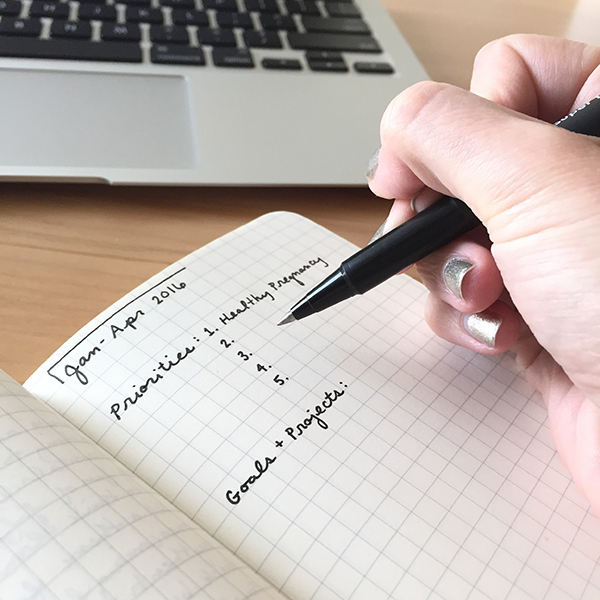 Jan - Apr 2016
Priorities: 1. Healthy Pregnancy
2.
3.
4.
5.
Goals + Projects: